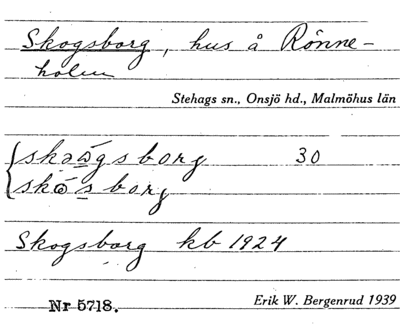 Skogsborg, hus å Rönne-
holm
Stehags sn., Onsjö hd., Malmöhus län
skoǻgsborg 30
skǻsborg
Skogsborg kb 1924
Nr 5718.
Erik W. Bergenrud 1939